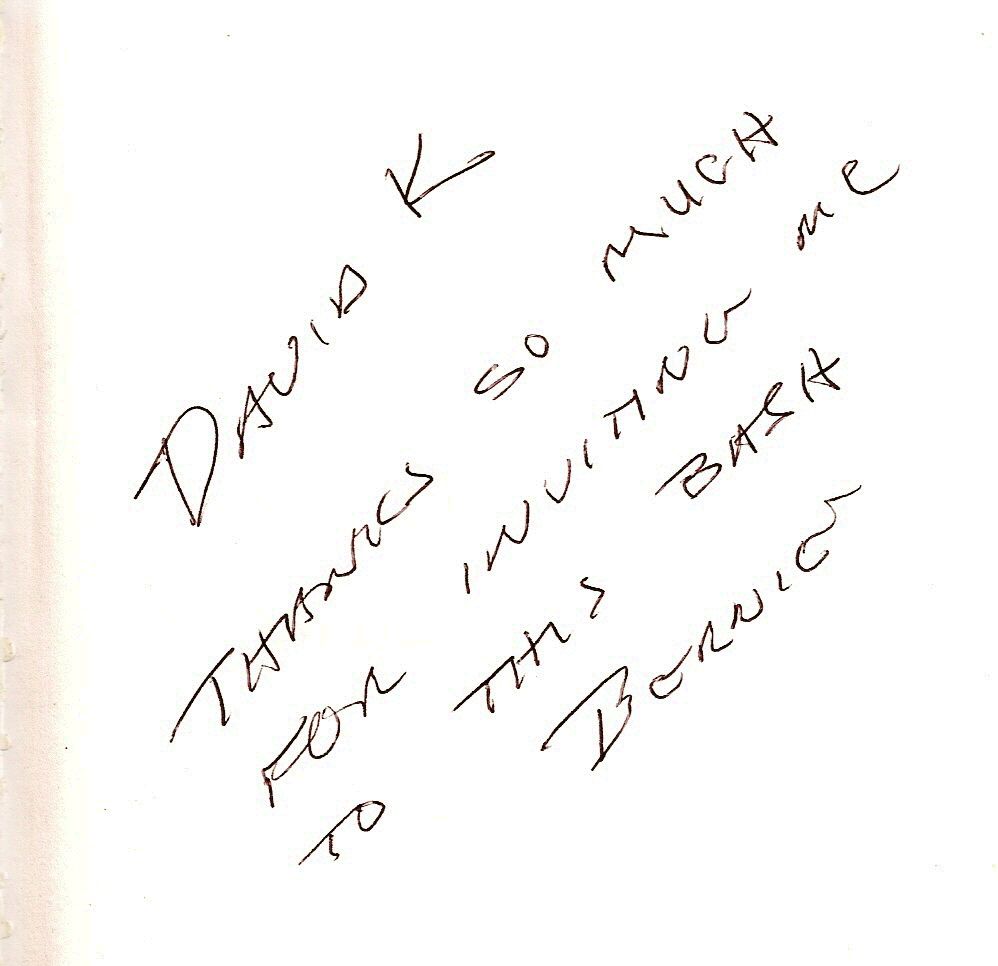 DAVID K
THANKS SO MUCH
FOR INVITING ME
TO THIS BASH
BERNIE